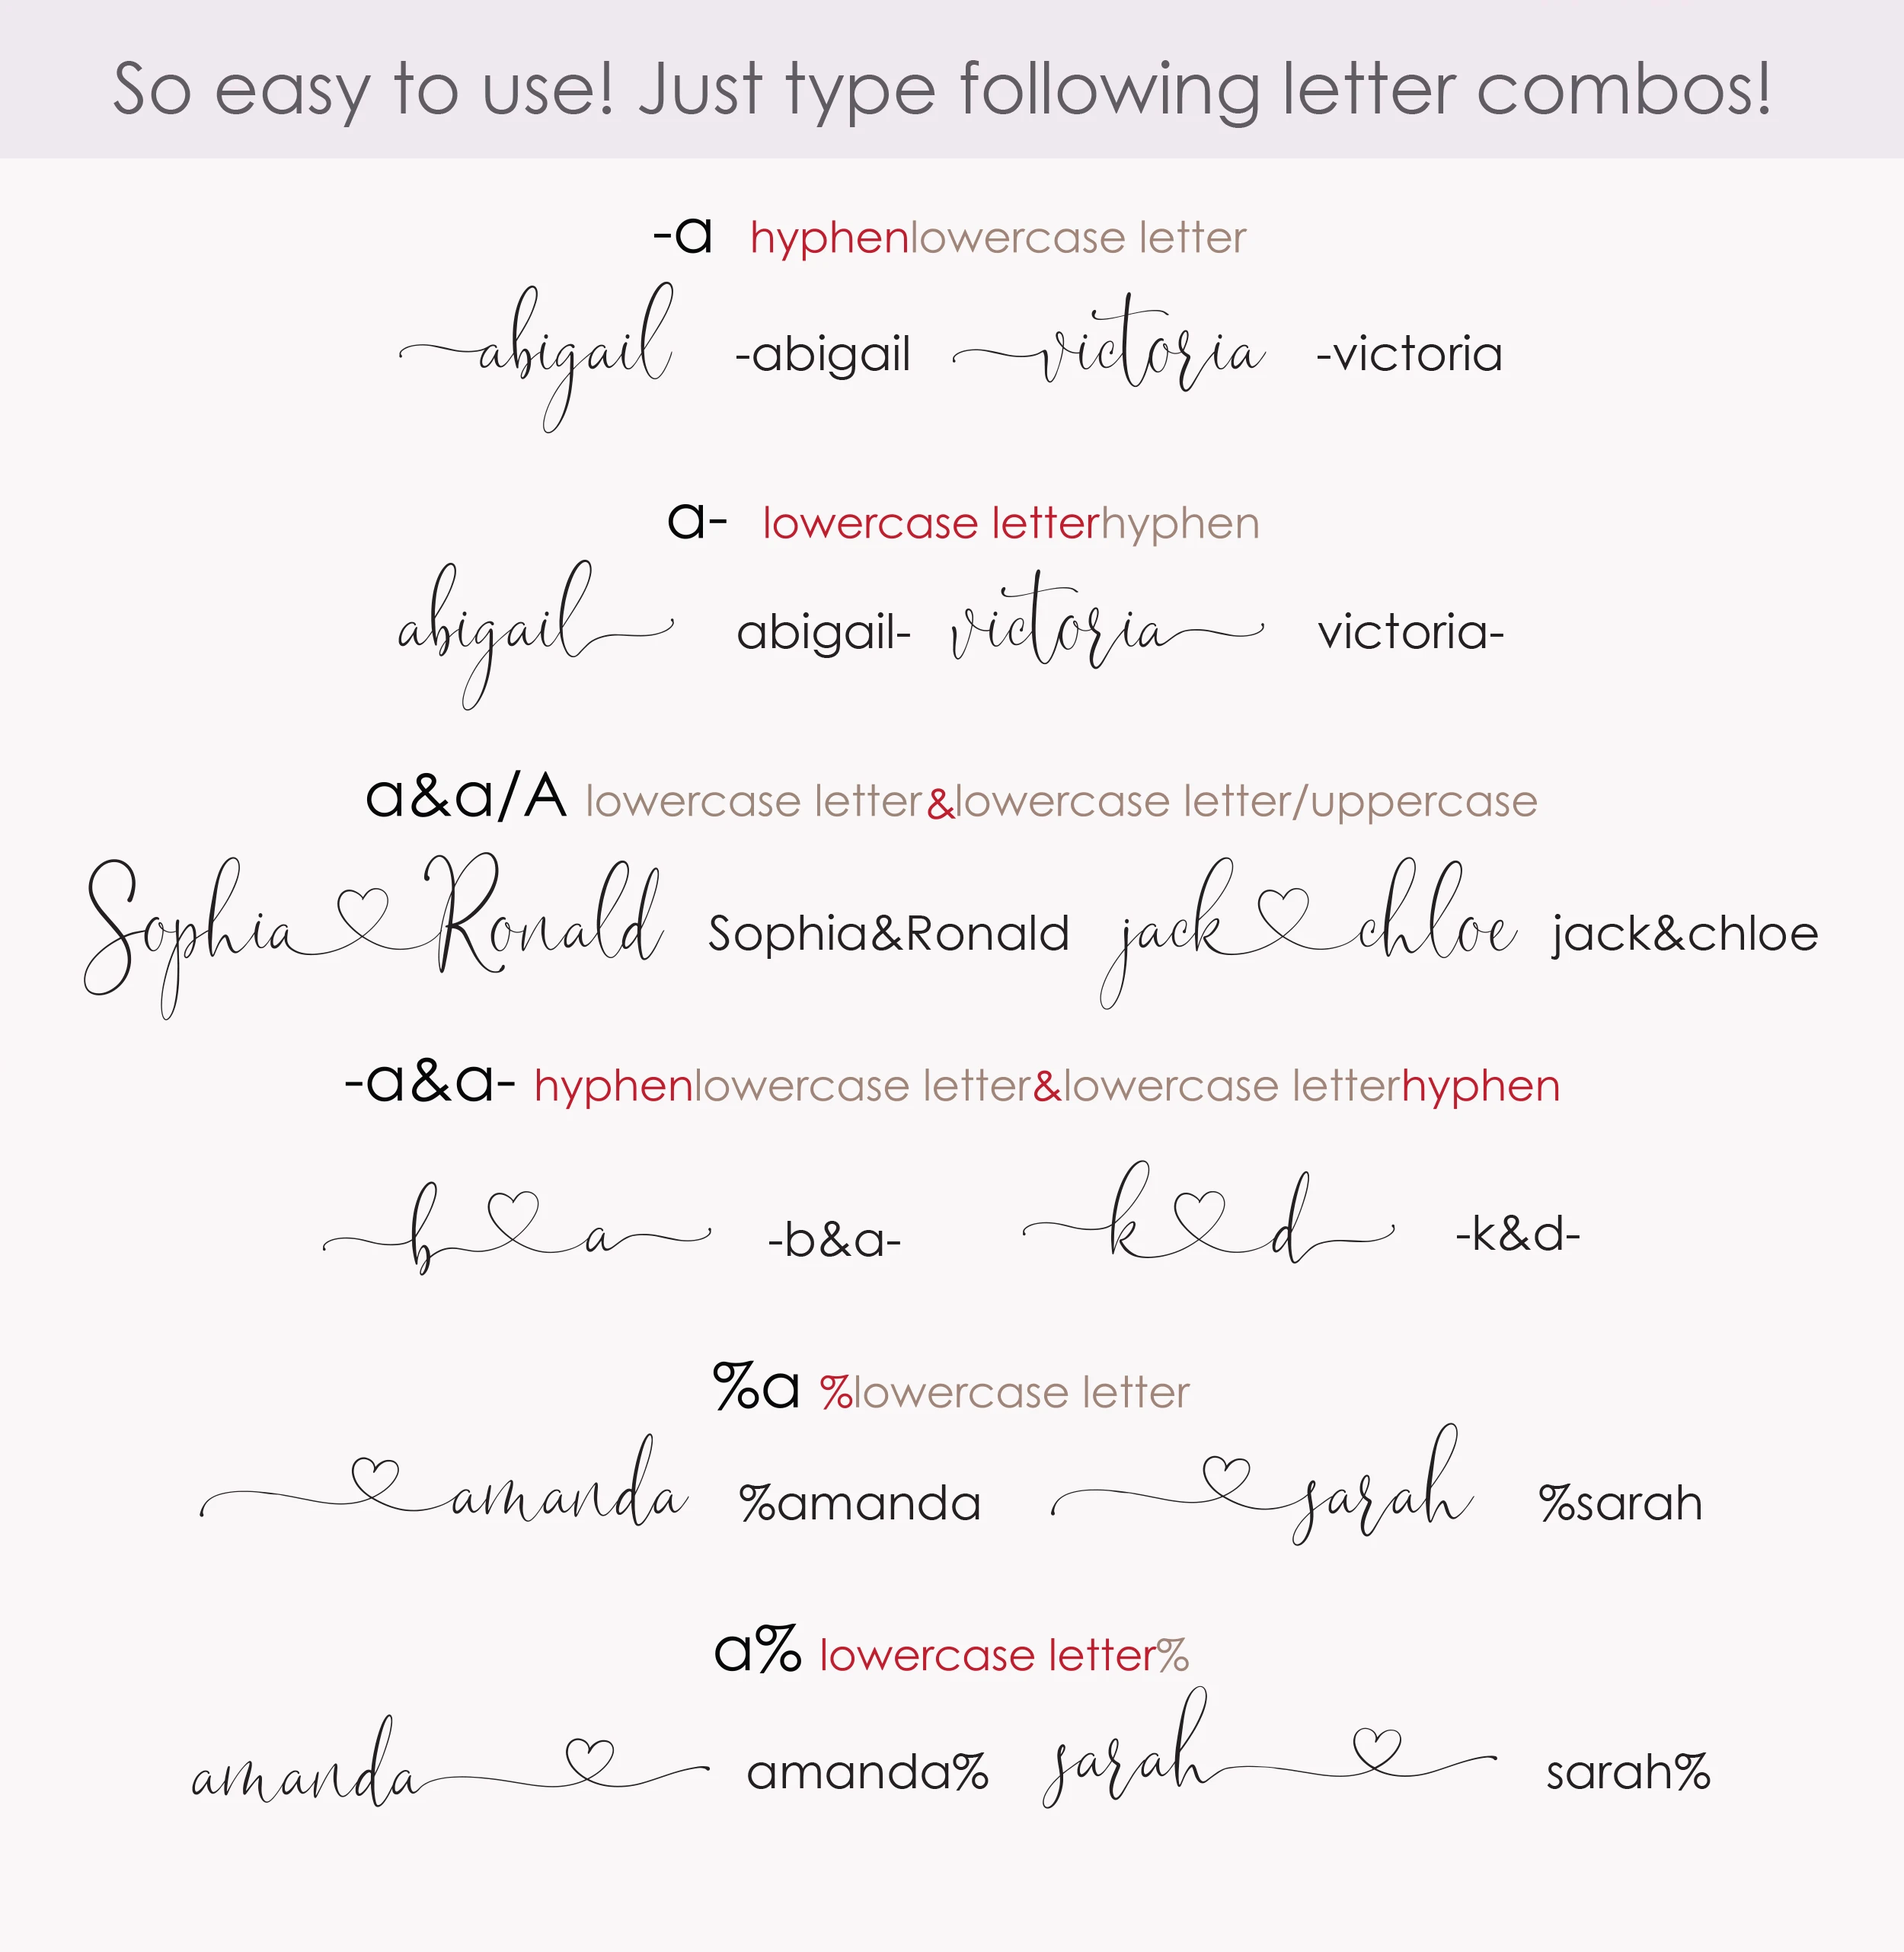 So easy to use! Just type following letter combos!
-a hyphenlowercase letter
abigail -abigail victoria -victoria
a- lowercase letterhyphen
abigail abigail- victoria victoria-
a&a/A lowercase letter&lowercase letter/uppercase
Sophia Ronald Sophia&Ronald jack chloe jack&chloe
-a&a- hyphenlowercase letter&lowercase letterhyphen
b a -b&a- k d -k&d-
%a %lowercase letter
amanda %amanda sarah %sarah
a% lowercase letter%
amanda amanda% sarah sarah%